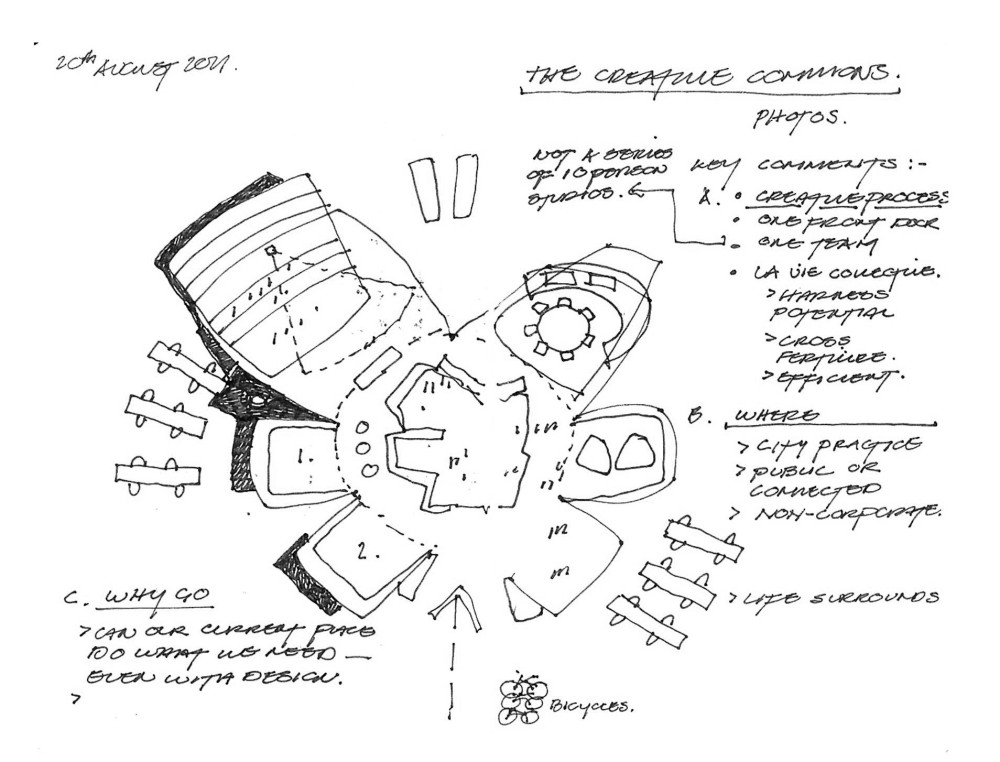 20th AUGUST 2021.
THE CREATIVE COMMONS.
PHOTOS.
NOT A SERIES
OF 10 PERSON
STUDIOS.
KEY COMMENTS :-
A. • CREATIVE PROCESS
• ONE FRONT DOOR
• ONE TEAM
• LA VIE
> HARNESS
POTENTIAL
> CROSS
FERTILIZE.
> EFFICIENT.
B. WHERE
> CITY PRACTICE
> PUBLIC OR
CONNECTED
> NON-CORPORATE.
> LIFE SURROUNDS
1.
2.
C. WHY GO
> CAN OUR CURRENT PLACE
DO WHAT WE NEED —
EVEN WITH DESIGN.
>
BICYCLES.